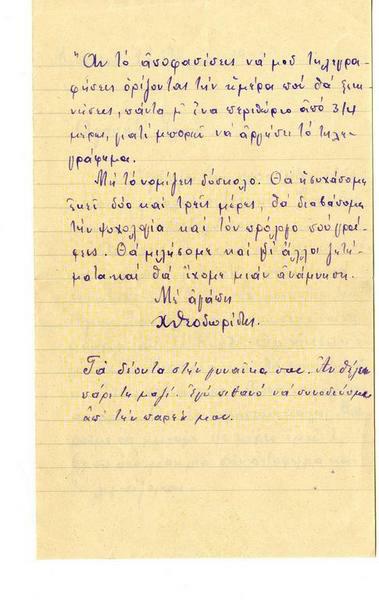 Ἂν τὸ ἀποφασίσεις νὰ μοῦ τηλεγρα-
φήσεις ὁρίζοντας τὴν ἡμέρα ποὺ θὰ ξεκι-
νήσεις, πάντα μ' ἕνα περιθώριο ἀπὸ 3/4
μέρες, γιατὶ μπορεῖ νὰ ἀργήσει τὸ τηλε-
γράφημα.
Μὴ τὸ νομίζεις δύσκολο. Θὰ ἡσυχάσομε
ἐκεῖ δύο καὶ τρεῖς μέρες, θὰ διαβάσομε
τὴν ψυχολογία καὶ τὸν πρόλογο ποὺ γρά-
φεις. Θὰ μιλήσομε καὶ γι' ἄλλα ζητή-
ματα καὶ θὰ ἔχομε μιὰν ἀνάμνηση.
Μὲ ἀγάπη
Χ Θεοδωρίδης.
Τὰ δέοντα στὴν γυναίκα σας. Ἂν θέλει
πάρε τη μαζί. Ἐγὼ πιθανὸ νὰ συνοδεύομαι
ἀπ' τὴν παρέα μου.